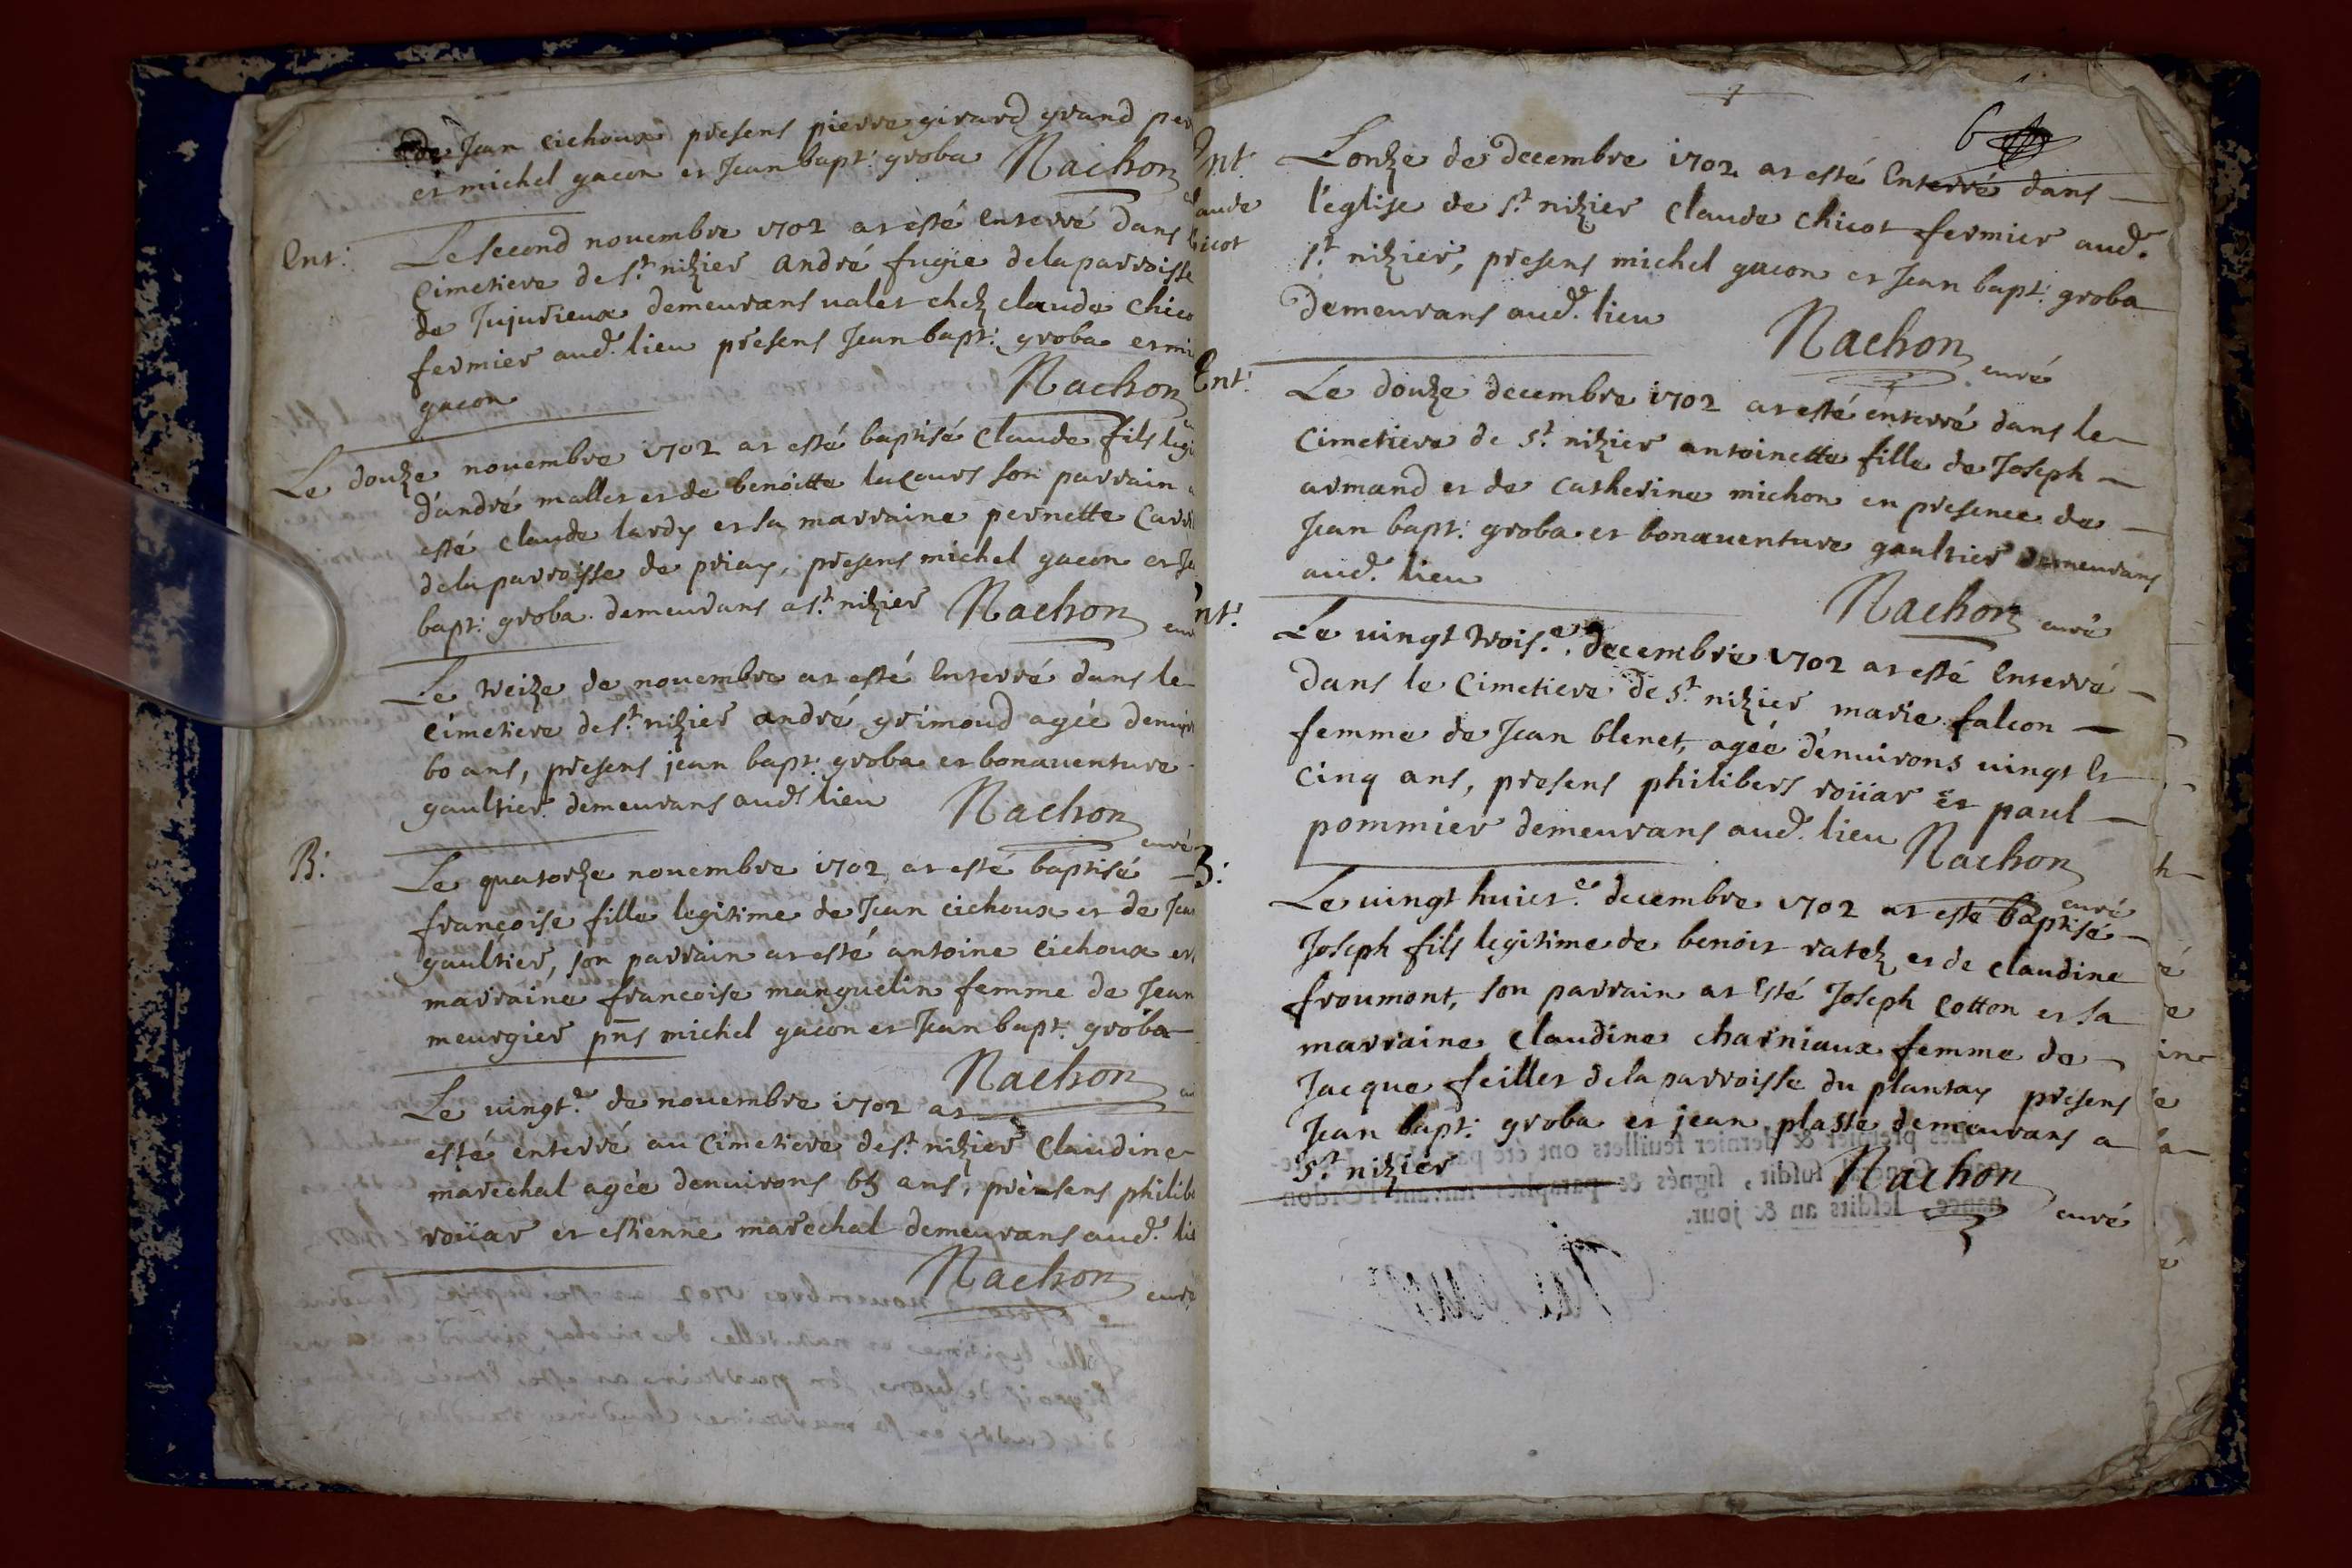 de Jean cichoux presens pierre girard grand per
et michel gacon et Jean bapt: groba Nachon
Ent: Le second novembre 1702 at esté enterré dans l
cimetiere de st nizier andré fugie de la parroisse
de Jujurieux demeurans valet chez claude chico
fermier aud. lieu presens Jean bapt: groba et mi
gacon Nachon
Le douze novembre 1702 at esté baptisé Claude fils legi
d'andré mallet et de benoitte lacours son parrain a
esté claude lardy et sa marraine pernette Carr
de la parroisse de priay, presens michel gacon et Je
bapt: groba demeurans a st nizier Nachon cur
Le treize de novembre at esté Enterré dans le
cimetiere de st nizier andré grimoud agée denvir
60 ans, presens jean bapt: groba et bonaventure
gaultier demeurans auds lieu Nachon curé
B: Le quatorze novembre 1702 at esté baptisé
françoise fille legitime de Jean cichoux et de Jea
gaultier, son parrain at esté antoine cichoux et
marraine francoise manguelin femme de Jean
meurgier pns michel gacon et Jean bapt: groba
Nachon cu
Le vingt.e de novembre 1702 at
esté enterré au cimetiere de st nizier Claudine
marechal agée denvirons 65 ans, presens philib
roüar et estienne marechal demeurans aud. lie
Nachon curé
6
Ent: Lonze de decembre 1702 at esté Enterré dans
laude l'eglise de st nizier claude chicot fermier aud.
icot st nizier, presens michel gacon et Jean bapt: groba
demeurans aud. lieu Nachon curé
Ent: Le douze decembre 1702 at esté enterré dans le
cimetiere de st nizier antoinette fille de Joseph
armand et de catherine michon en presence de
Jean bapt: groba et bonaventure gaultier demeurans
aud. lieu Nachon curé
nt: Le vingt trois.e decembre 1702 at esté Enterré
dans le Cimetiere de st nizier marie falcon
femme de Jean blenet, agée d'environs vingt et
cinq ans, presens philibert roüar et paul
pommier demeurans aud. lieu Nachon curé
B: Le vingt huict.e decembre 1702 at esté baptisé
Joseph fils legitime de benoit ratez et de claudine
froumont, son parrain at esté Joseph cotton et sa
marraine claudine charniaux femme de
Jacque feillet de la parroisse du plantay presens
Jean bapt: groba et jean plasse demeurans a
st nizier Nachon curé